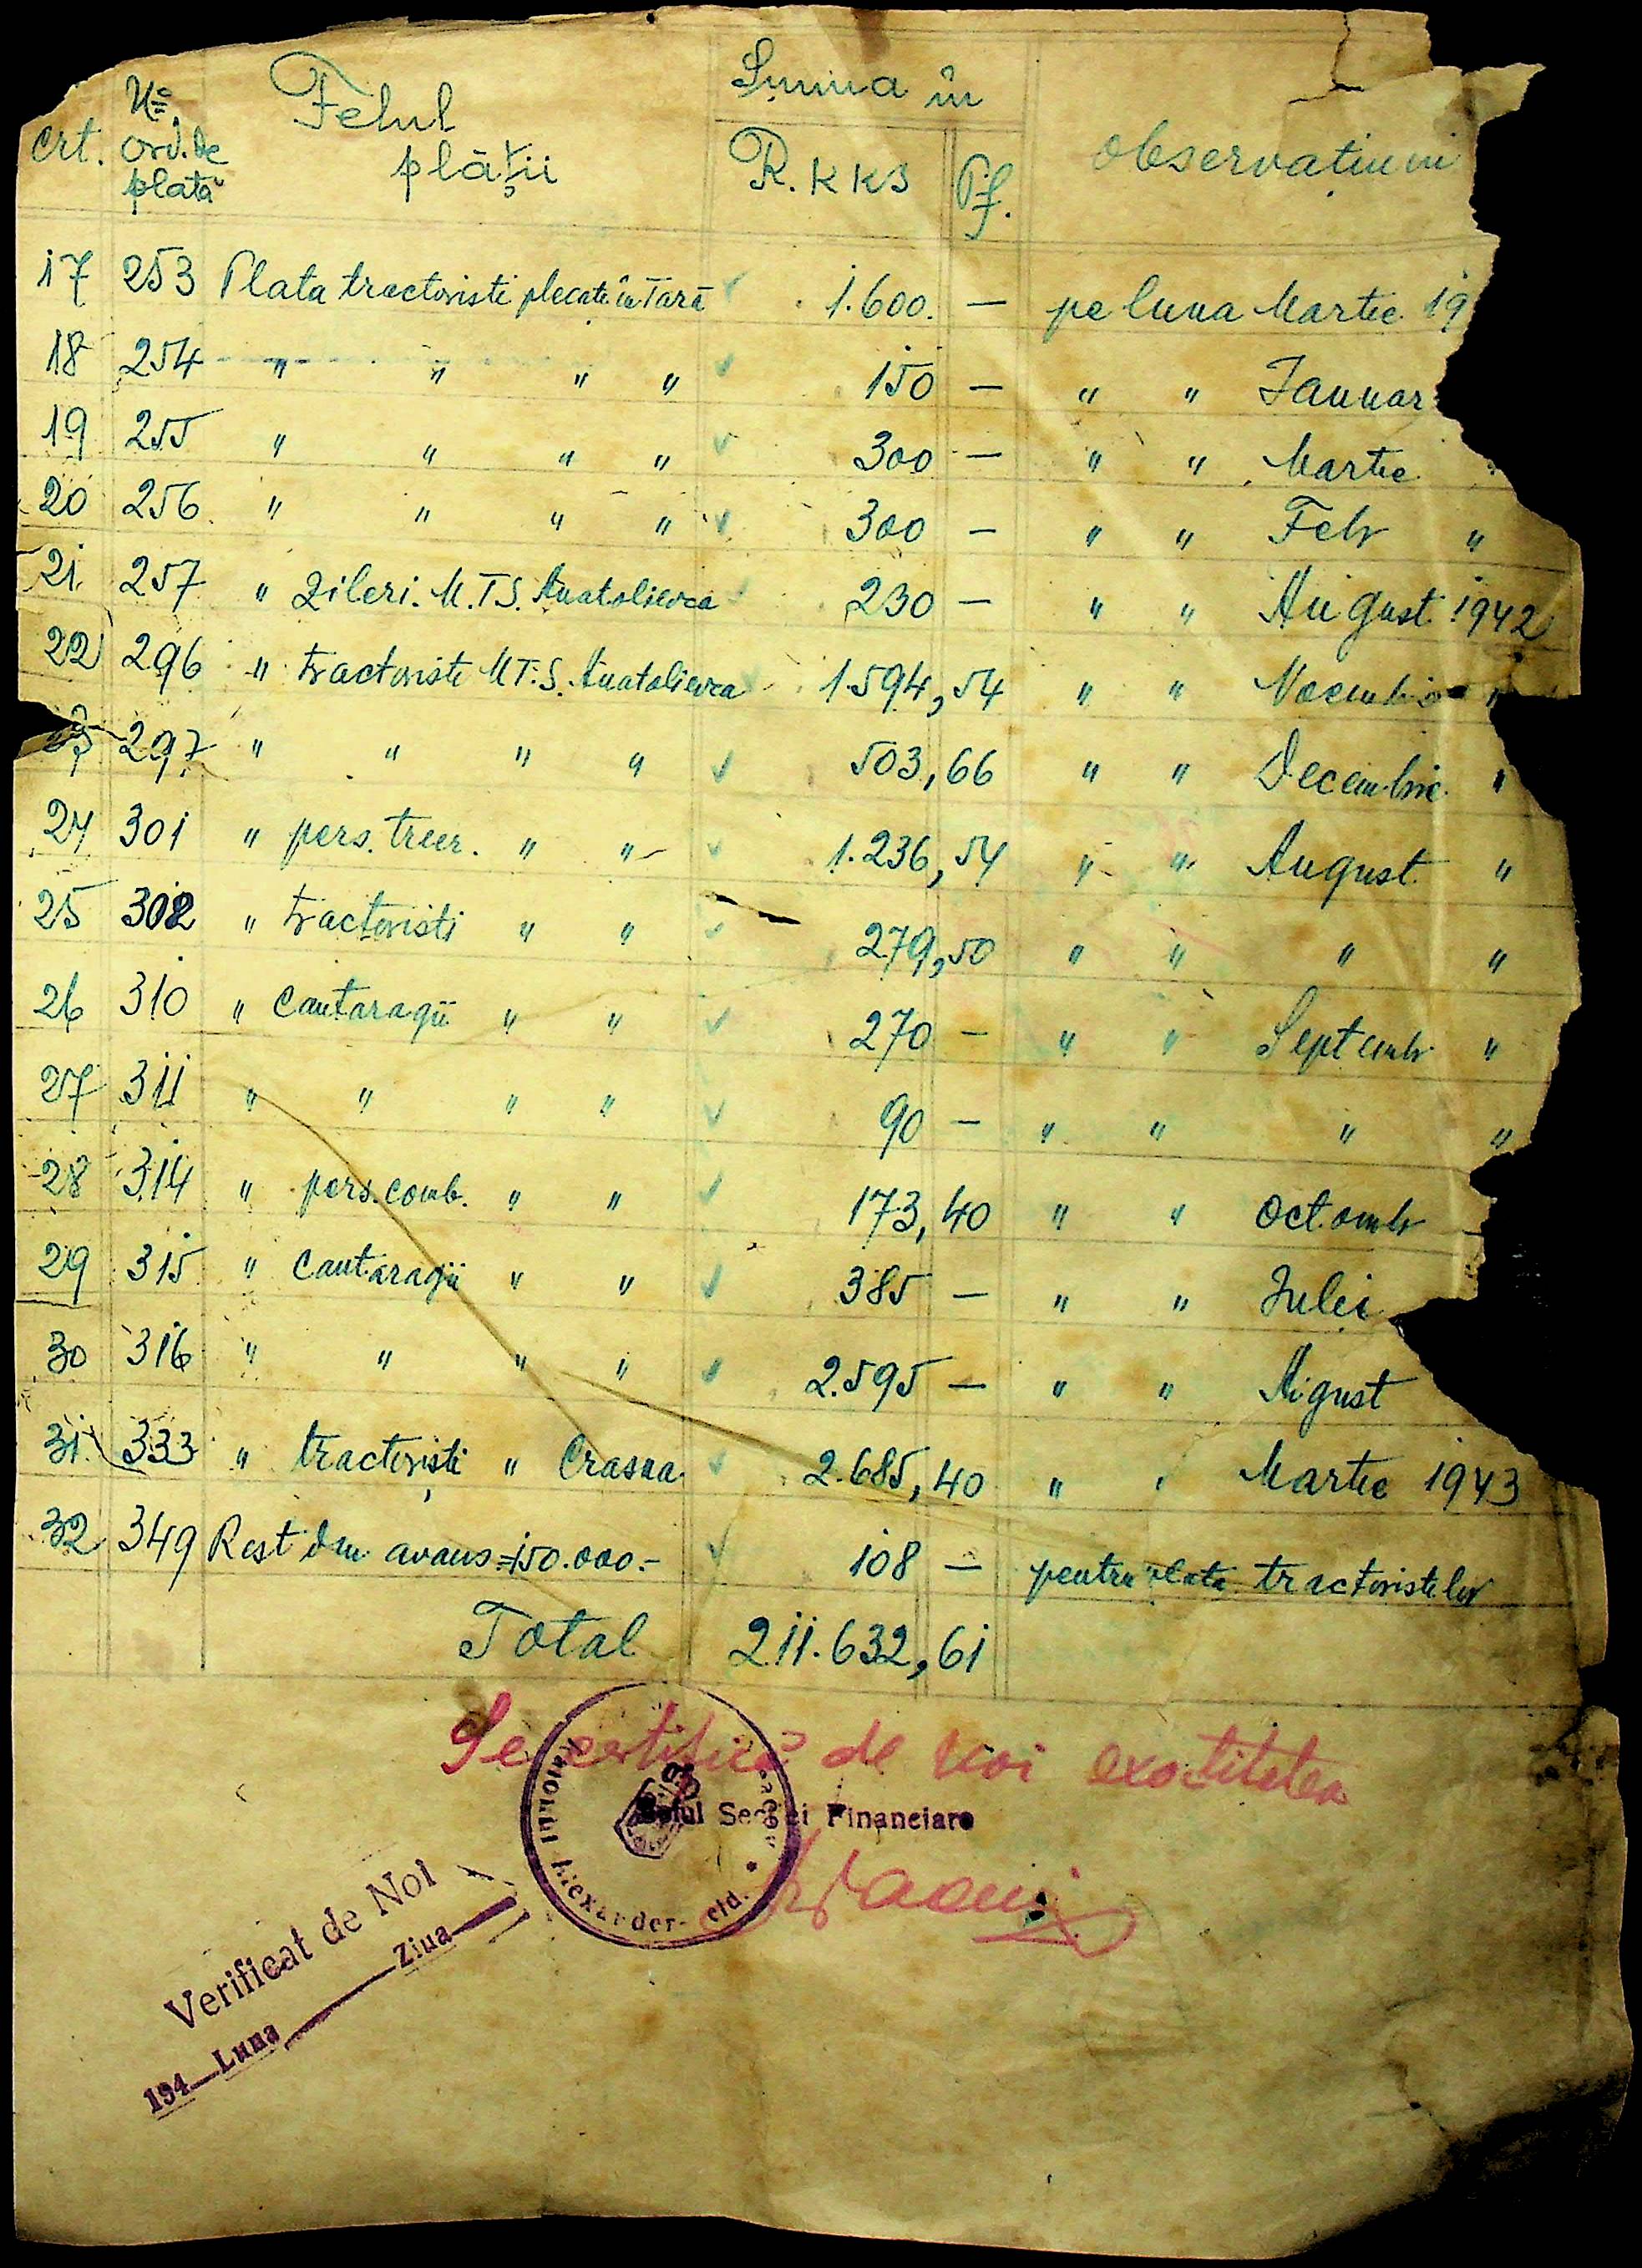 crt. No ord. de plată Felul plății Suma în R.KKS Pf. observațiuni
17 253 Plata tractoriste plecate în Țară 1.600. — pe luna Martie 19
18 254 " " " " 150 — " " Januar
19 255 " " " " 300 — " " Martie
20 256 " " " " 300 — " " Febr "
21 257 " zileri. M.T.S. Anatolievca 230 — " " August 1942
22 296 " tractoriste M.T.S. Anatolievca 1.594,54 " " Noembrie "
297 " " " " 503,66 " " Decembrie "
24 301 " pers. treer. " " 1.236,54 " " August "
25 302 " tractoristi " " 279,50 " " " "
26 310 " Cantaragii " " 270 — " " Septembr "
27 311 " " " " 90 — " " " "
28 314 " pers. comb. " " 173,40 " " Octombr
29 315 " Cantaragii " " 385 — " " Julei
30 316 " " " " 2.595 — " " August
31 333 " tractoriști " Crasna 2.685,40 " " Martie 1943
32 349 Rest din avans =150.000.- 108 — pentru plata tractoristilor
Total 211.632,61
Se certifică de noi exactitatea
Șeful Secției Financiare
Raionul Alexander- eld.
Verificat de Noi
194 Luna Ziua